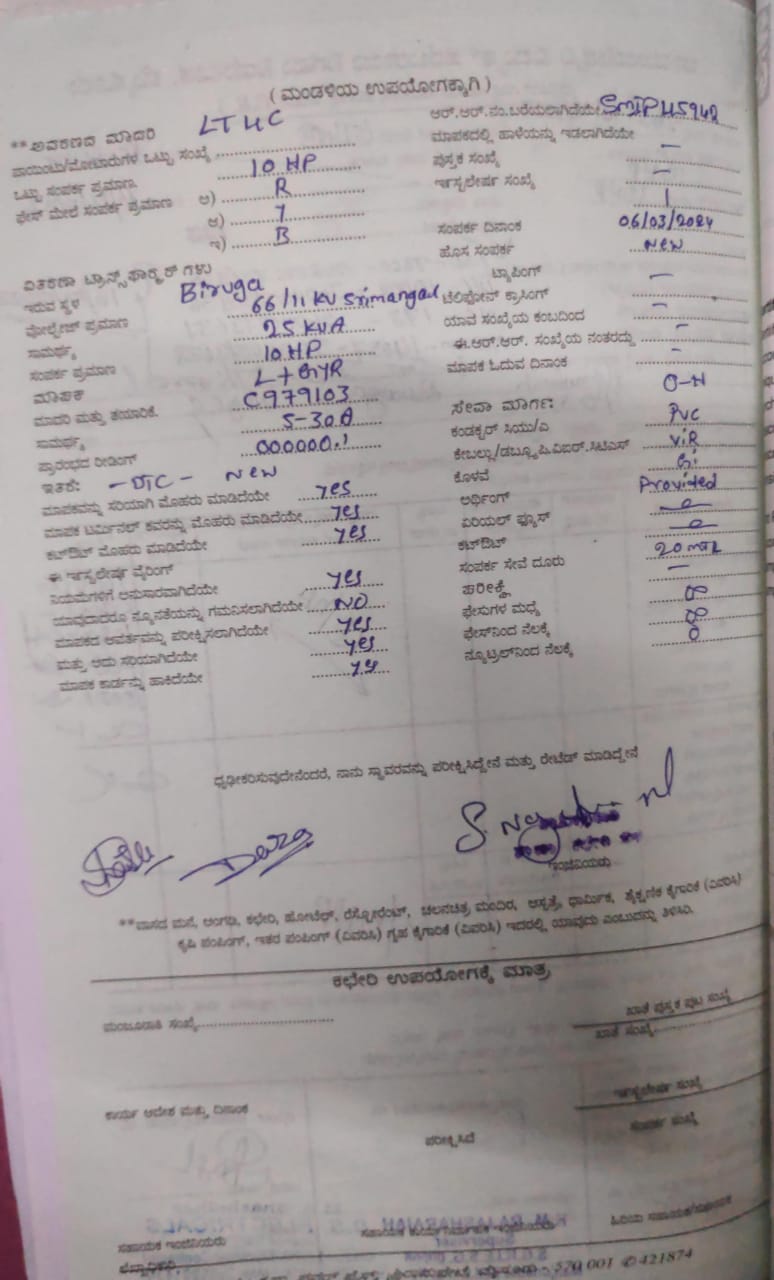 ( ಮಂಡಳಿಯ ಉಪಯೋಗಕ್ಕಾಗಿ )
**ಅವಕರಣದ ಮಾದರಿ LT4C
ಪಾಯಿಂಟು/ಮೋಟಾರುಗಳ ಒಟ್ಟು ಸಂಖ್ಯೆ
ಒಟ್ಟು ಸಂಪರ್ಕ ಪ್ರಮಾಣ 10 HP
ಫೇಸ್ ಮೇಲೆ ಸಂಪರ್ಕ ಪ್ರಮಾಣ ಅ) R
ಆ) Y
ಇ) B
ವಿತರಣಾ ಟ್ರಾನ್ಸ್‌ಫಾರ್ಮರ್ ಗಳು
ಇರುವ ಸ್ಥಳ Biruga
ವೋಲ್ಟೇಜ್ ಪ್ರಮಾಣ 66/11 KV Srimangal
ಸಾಮರ್ಥ್ಯ 25 KVA
ಸಂಪರ್ಕ ಪ್ರಮಾಣ 10 HP
ಮಾಪಕ
ಮಾದರಿ ಮತ್ತು ತಯಾರಿಕೆ. C979103
ಸಾಮರ್ಥ್ಯ 5-30A
ಪ್ರಾರಂಭದ ರೀಡಿಂಗ್ 000000.1
ಇತರೆ: -DTC- New
ಮಾಪಕವನ್ನು ಸರಿಯಾಗಿ ಮೊಹರು ಮಾಡಿದೆಯೇ yes
ಮಾಪಕ ಟರ್ಮಿನಲ್ ಕವರನ್ನು ಮೊಹರು ಮಾಡಿದೆಯೇ yes
ಕಟ್‌ಔಟ್ ಮೊಹರು ಮಾಡಿದೆಯೇ yes
ಈ ಇನ್ಸ್ಟಲೇಷನ್ ವೈರಿಂಗ್
ನಿಯಮಗಳಿಗೆ ಅನುಸಾರವಾಗಿದೆಯೇ yes
ಯಾವುದಾದರೂ ನ್ಯೂನತೆಯನ್ನು ಗಮನಿಸಲಾಗಿದೆಯೇ NO
ಮಾಪಕದ ಆವರ್ತವನ್ನು ಪರೀಕ್ಷಿಸಲಾಗಿದೆಯೇ yes
ಮತ್ತು ಅದು ಸರಿಯಾಗಿದೆಯೇ yes
ಮಾಪಕ ಕಾರ್ಡನ್ನು ಹಾಕಿದೆಯೇ yes
ಆರ್.ಆರ್.ನಂ.ಬರೆಯಲಾಗಿದೆಯೇ SMIP45942
ಮಾಪಕದಲ್ಲಿ ಹಾಳೆಯನ್ನು ಇಡಲಾಗಿದೆಯೇ —
ಪುಸ್ತಕ ಸಂಖ್ಯೆ —
ಇನ್ಸ್ಟಲೇಷನ್ ಸಂಖ್ಯೆ 1
ಸಂಪರ್ಕ ದಿನಾಂಕ 06/03/2024
ಹೊಸ ಸಂಪರ್ಕ New
ಟ್ಯಾಪಿಂಗ್ —
ಟೆಲಿಫೋನ್ ಕ್ರಾಸಿಂಗ್ —
ಯಾವ ಸಂಖ್ಯೆಯ ಕಂಬದಿಂದ —
ಈ.ಆರ್.ಆರ್. ಸಂಖ್ಯೆಯ ನಂತರದ್ದು —
ಮಾಪಕ ಓದುವ ದಿನಾಂಕ —
ಸೇವಾ ಮಾರ್ಗ: O-H
ಕಂಡಕ್ಟರ್ ಸಿಯು/ಎ PVC
ಕೇಬಲ್ಲು/ಡಬ್ಲ್ಯೂ.ಪಿ.ವಿಐಆರ್.ಸಿಟಿಎಸ್ ViR
ಕೊಳವೆ Gi
ಅರ್ಥಿಂಗ್ Provided
ಏರಿಯಲ್ ಫ್ಯೂಸ್
ಕಟ್‌ಔಟ್
ಸಂಪರ್ಕ ಸೇವೆ ದೂರು 20 MTR
ಪರೀಕ್ಷೆ —
ಫೇಸುಗಳ ಮಧ್ಯೆ ∞
ಫೇಸ್‌ನಿಂದ ನೆಲಕ್ಕೆ ∞
ನ್ಯೂಟ್ರಲ್‌ನಿಂದ ನೆಲಕ್ಕೆ 0
ಧೃಢೀಕರಿಸುವುದೇನೆಂದರೆ, ನಾನು ಸ್ಥಾವರವನ್ನು ಪರೀಕ್ಷಿಸಿದ್ದೇನೆ ಮತ್ತು ರೇಟೆಡ್ ಮಾಡಿದ್ದೇನೆ
ಇಂಜಿನಿಯರು
**ವಾಸದ ಮನೆ, ಅಂಗಡಿ, ಕಛೇರಿ, ಹೋಟೆಲ್, ರೆಸ್ಟೋರೆಂಟ್, ಚಲನಚಿತ್ರ ಮಂದಿರ, ಆಸ್ಪತ್ರೆ, ಧಾರ್ಮಿಕ, ಶೈಕ್ಷಣಿಕ ಕೈಗಾರಿಕೆ (ವಿವರಿಸಿ)
ಕೃಷಿ ಪಂಪಿಂಗ್, ಇತರ ಪಂಪಿಂಗ್ (ವಿವರಿಸಿ) ಗೃಹ ಕೈಗಾರಿಕೆ (ವಿವರಿಸಿ) ಇದರಲ್ಲಿ ಯಾವುದು ಎಂಬುದನ್ನು ತಿಳಿಸಿರಿ.
ಕಛೇರಿ ಉಪಯೋಗಕ್ಕೆ ಮಾತ್ರ
ಮಂಜೂರಾತಿ ಸಂಖ್ಯೆ
ಖಾತೆ ಪುಸ್ತಕ ಪುಟ ಸಂಖ್ಯೆ
ಖಾತೆ ಸಂಖ್ಯೆ
ಇನ್ಸ್ಟಲೇಷನ್ ಸಂಖ್ಯೆ
ಕಾರ್ಯ ಆದೇಶ ಮತ್ತು ದಿನಾಂಕ
ಸಂಪರ್ಕ ಸಂಖ್ಯೆ
ಪರೀಕ್ಷಿಸಿದೆ
ಸಹಾಯಕ ಇಂಜಿನಿಯರು
570 001 ✆ 421874